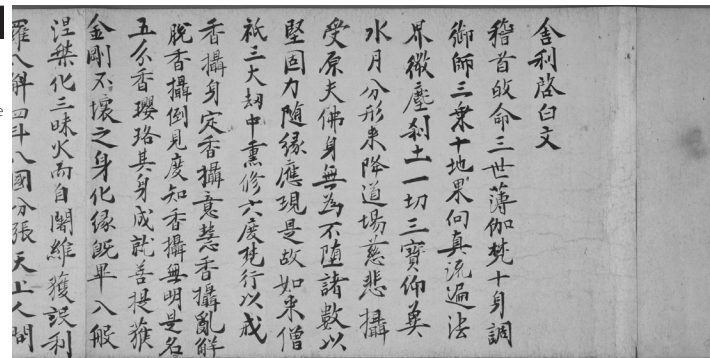 舍利啓白文
稽首歸命三世薄伽梵十身調
御師三乗十地果向真流遍法
界微塵刹土一切三寳仰兾
水月分形来降道場慈悲攝
受原夫佛身無為不堕諸數以
堅固力随縁應現是故如来僧
祇三大劫中熏修六度梵行以戒
香攝身定香攝意慧香攝亂解
脱香攝倒見度知香攝無明是名
五分香瓔珞其身成就善提獲
金剛不壊之身化縁既畢入般
涅槃化三昧火而自闍維獲設利
羅八斛四斗八國分張天上人間